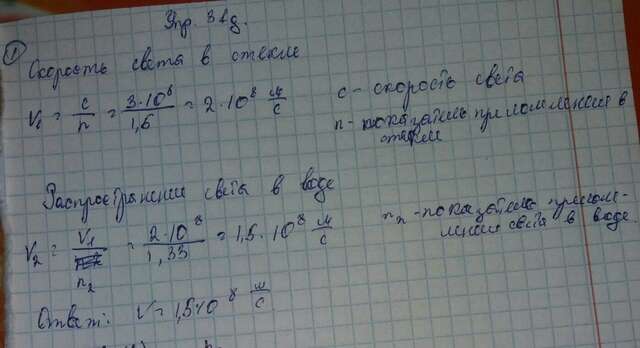 Упр. 31д.
① Скорость света в стекле
V₁ = c/n = 3·10⁸/1,5 = 2·10⁸ м/с
c - скорость света
n - показатель преломления в
стекле
Распространение света в воде
V₂ = V₁/n₂ = 2·10⁸/1,33 = 1,5·10⁸ м/с
n₂ - показатель прелом-
ления света в воде.
Ответ: V = 1,5·10⁸ м/с